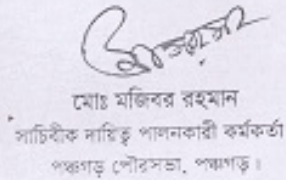 মোঃ মজিবর রহমান
সাচিবীক দায়িত্ব পালনকারী কর্মকর্তা
পঞ্চগড় পৌরসভা, পঞ্চগড়।